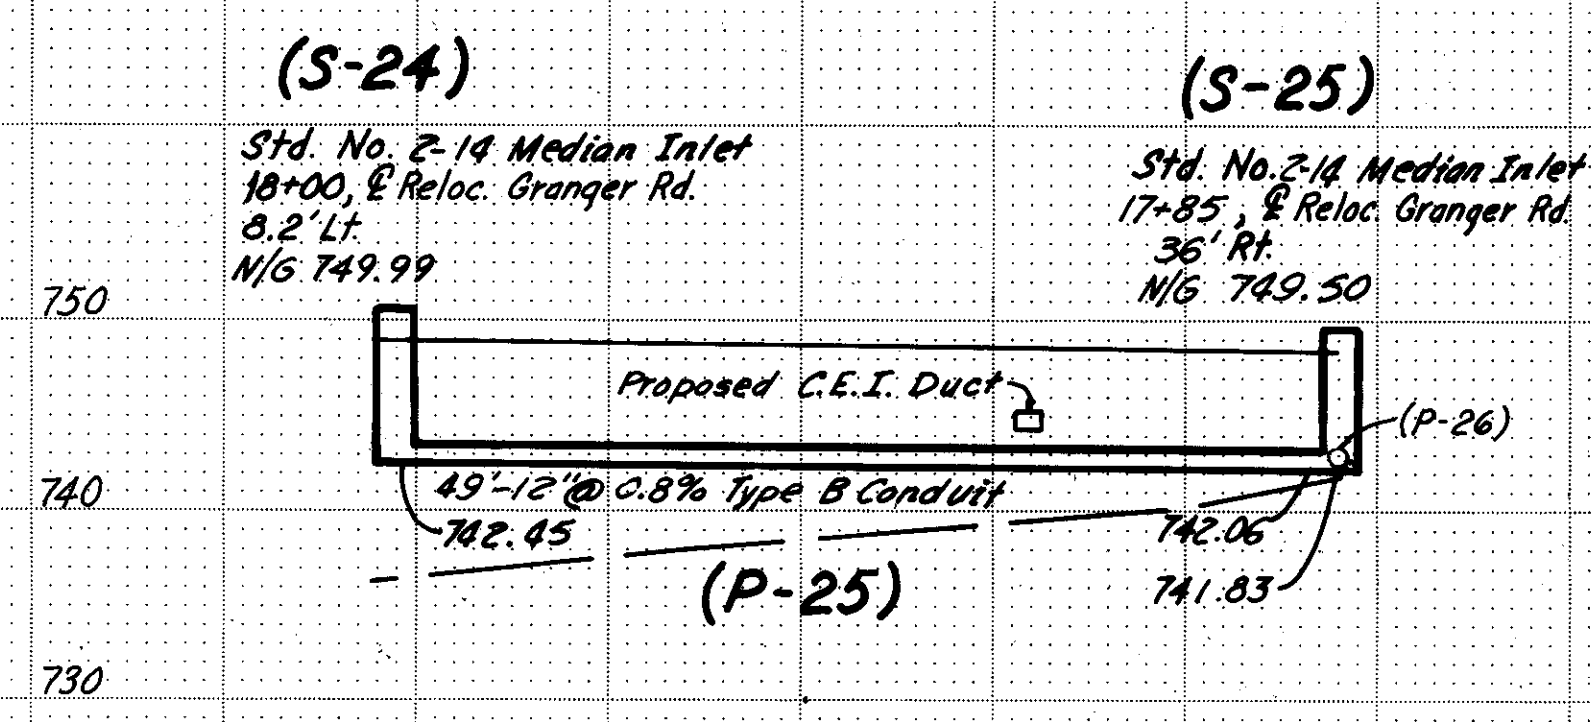 (S-24)
Std. No. 2-14 Median Inlet
18+00, ℄ Reloc. Granger Rd.
8.2' Lt.
N/G 749.99
(S-25)
Std. No. 2-14 Median Inlet
17+85, ℄ Reloc. Granger Rd.
36' Rt.
N/G 749.50
750
Proposed C.E.I. Duct
(P-26)
740
49'-12" @ 0.8% Type B Conduit
742.45
742.06
(P-25)
741.83
730